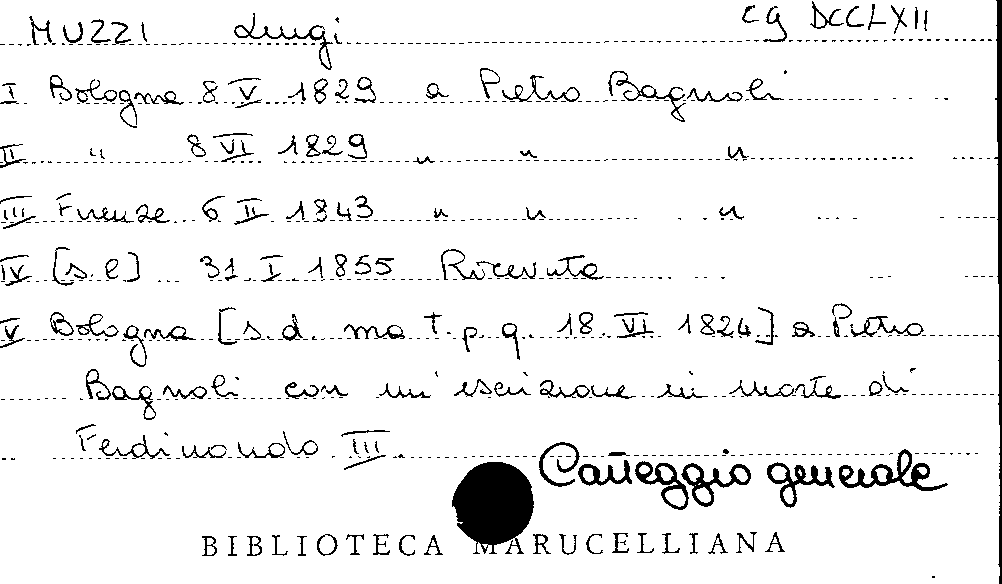 MUZZI Luigi CG DCCLXII
I Bologna 8 V 1829 a Pietro Bagnoli
II " 8 VI 1829 " " "
III Firenze 6 II 1843 " " "
IV [s.l] 31 I 1855 Ricevuta
V Bologna [s.d. ma t.p.q. 18. VI 1824] a Pietro
Bagnoli con un'iscrizione in morte di
Ferdinando III.
Carteggio generale
BIBLIOTECA MARUCELLIANA